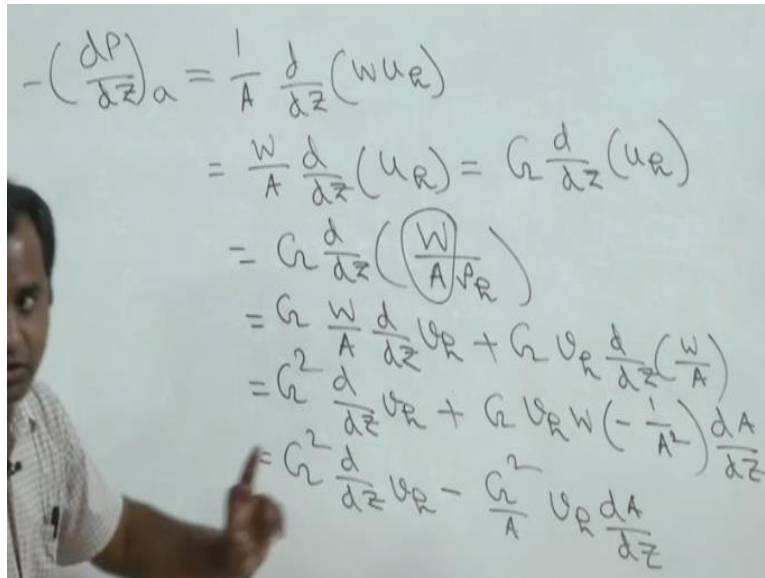 -(dP/dz)a = 1/A d/dz (W u_h)
= W/A d/dz (u_h) = G d/dz (u_h)
= G d/dz (W/A ρ_h)
= G W/A d/dz v_h + G v_h d/dz (W/A)
= G² d/dz v_h + G v_h W (-1/A²) dA/dz
= G² d/dz v_h - G²/A v_h dA/dz